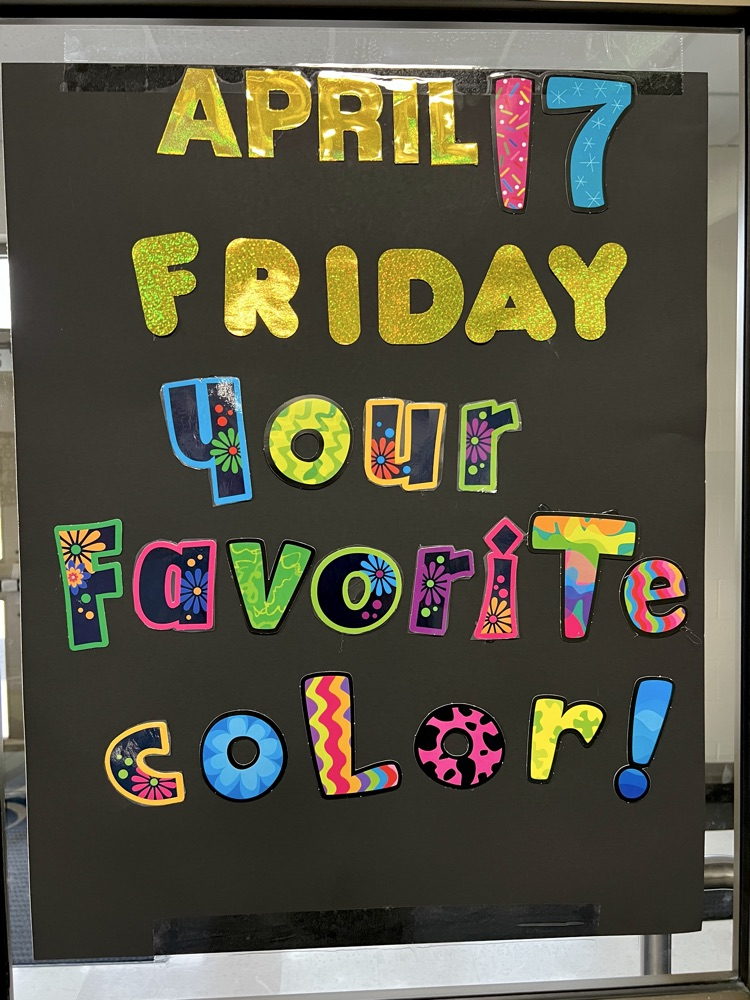 APRIL 17
FRIDAY
your
FavoriTe
coLor!